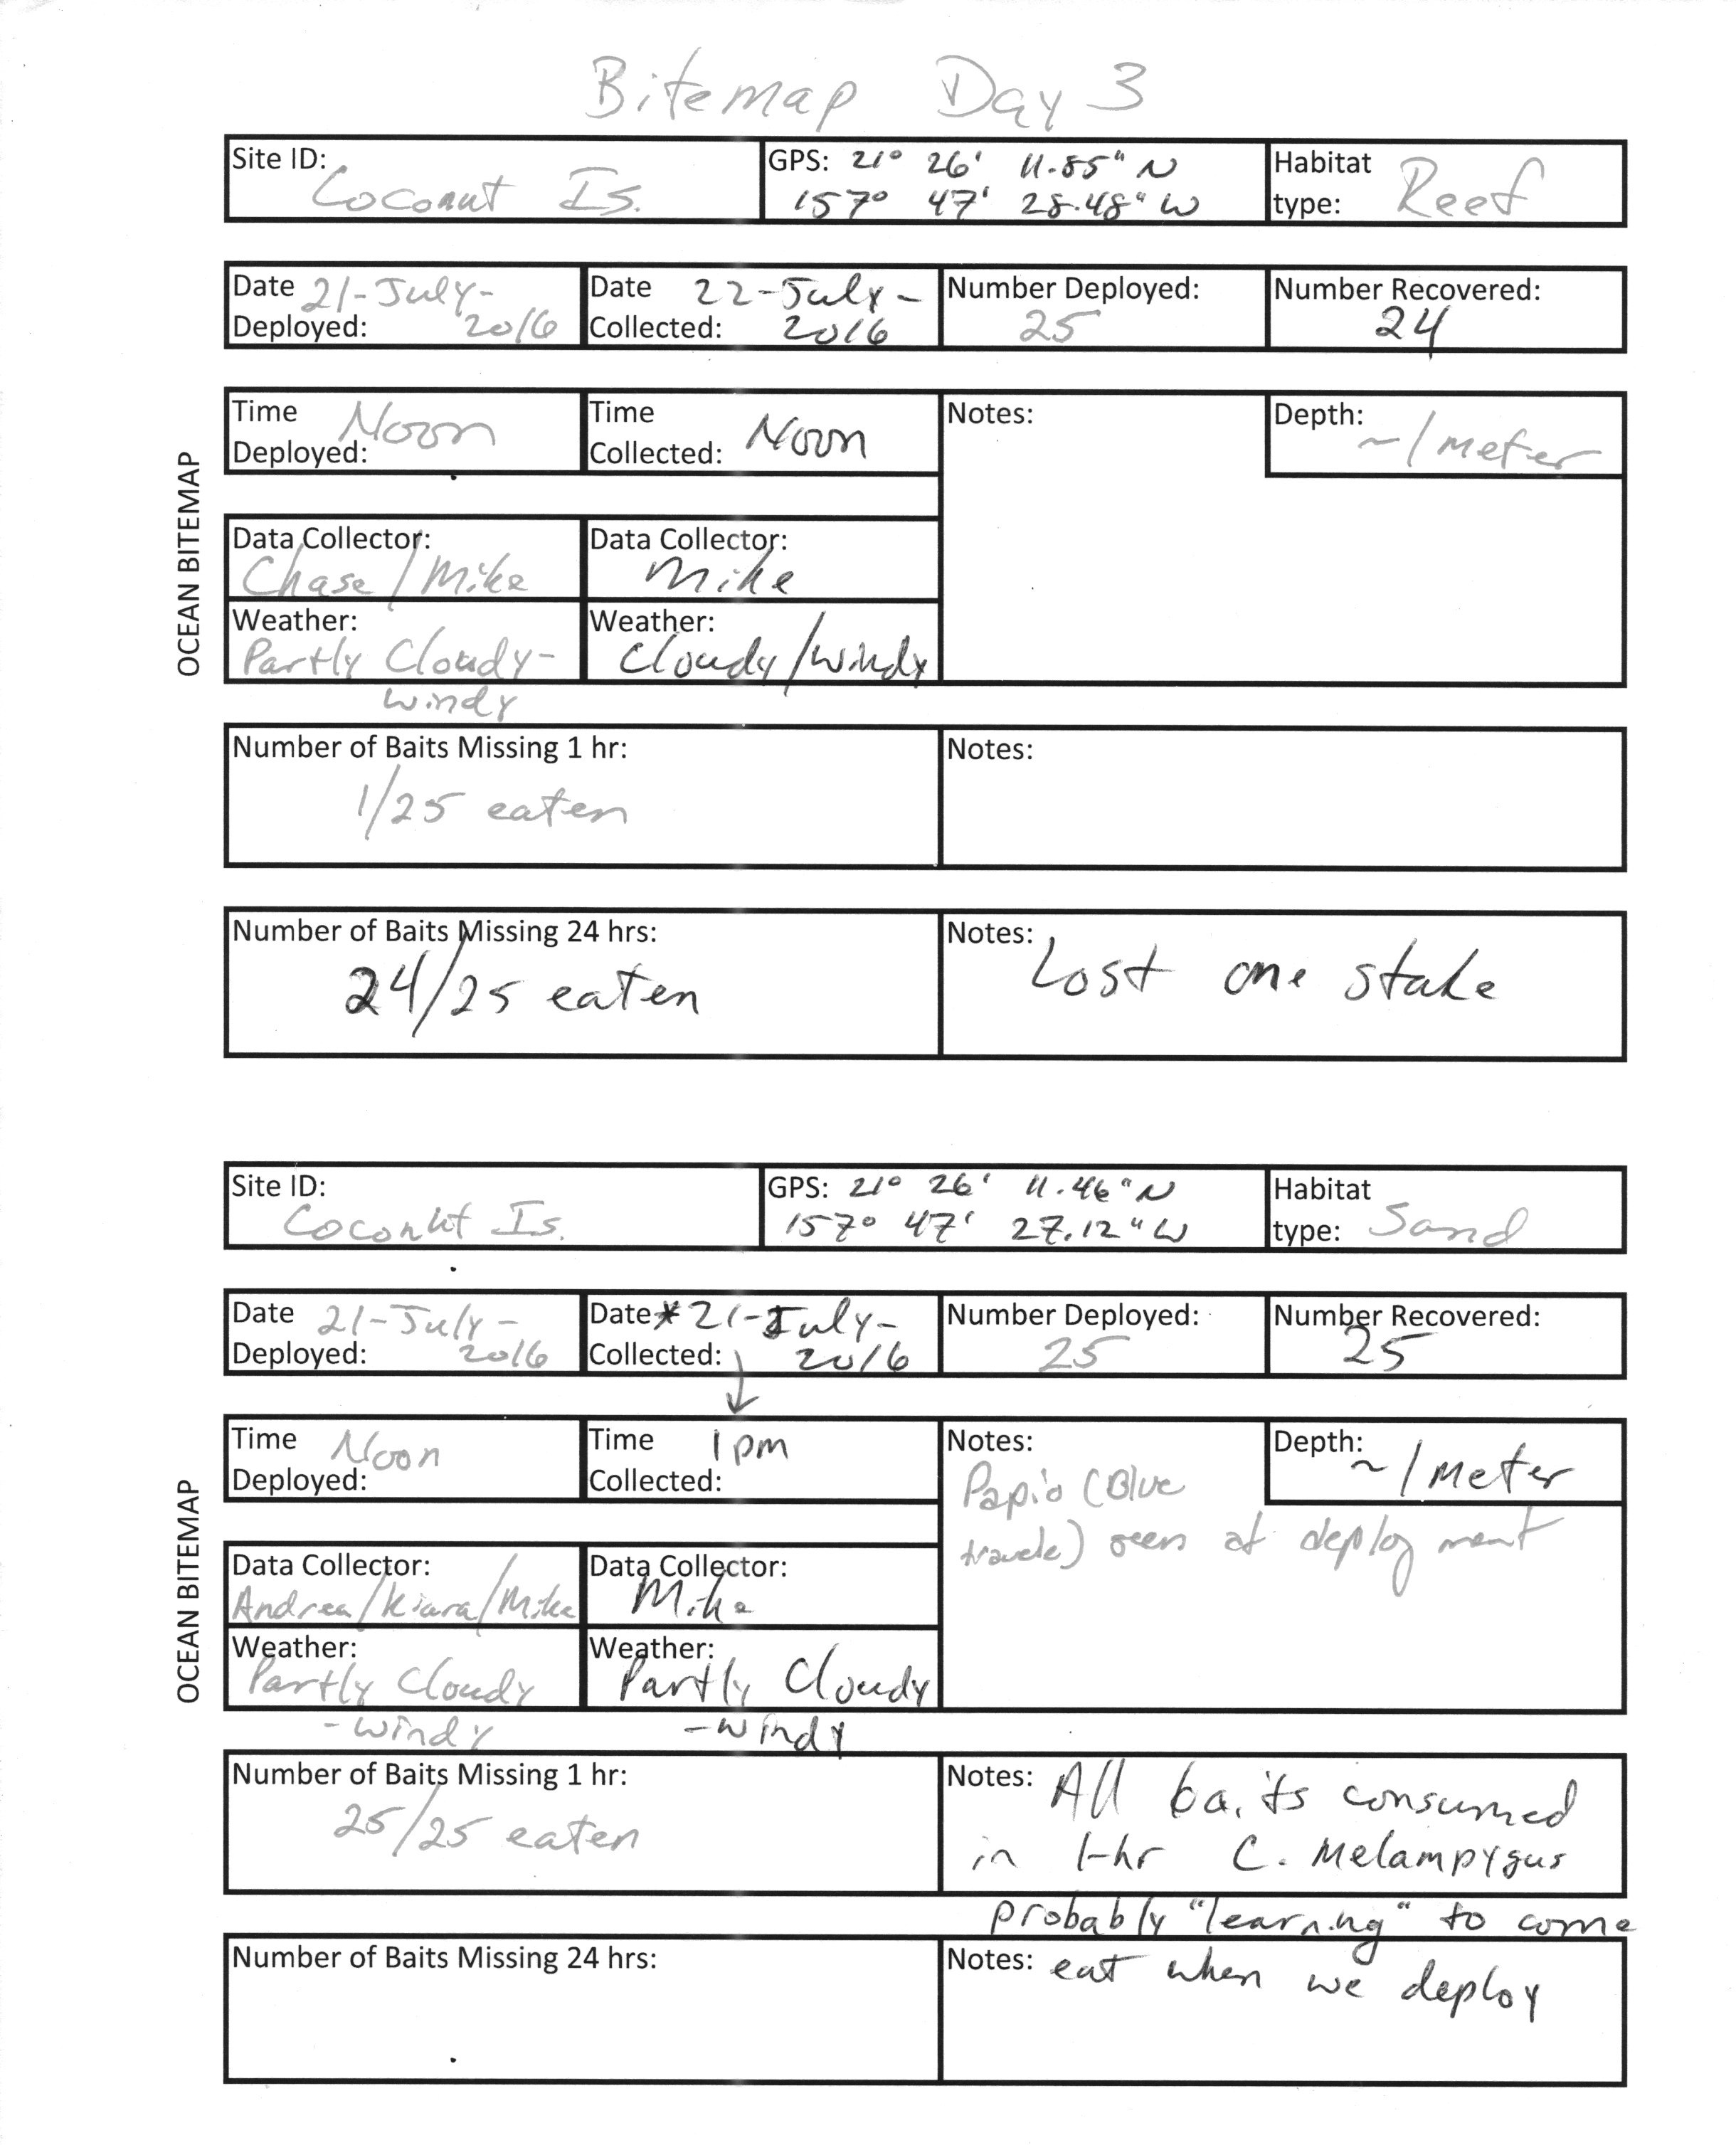 Bitemap Day 3
Site ID: Coconut Is.
GPS: 21° 26' 11.85" N
157° 47' 28.48" W
Habitat type: Reef
Date Deployed: 21-July-2016
Date Collected: 22-July-2016
Number Deployed: 25
Number Recovered: 24
Time Deployed: Noon
Time Collected: Noon
Notes:
Depth: ~1 meter
OCEAN BITEMAP
Data Collector: Chase/Mike
Data Collector: Mike
Weather: Partly Cloudy-
windy
Weather: Cloudy/windy
Number of Baits Missing 1 hr:
1/25 eaten
Notes:
Number of Baits Missing 24 hrs:
24/25 eaten
Notes: Lost one stake
Site ID: Coconut Is.
GPS: 21° 26' 11.46" N
157° 47' 27.12" W
Habitat type: Sand
Date Deployed: 21-July-2016
Date Collected: *21-July-2016
Number Deployed: 25
Number Recovered: 25
Time Deployed: Noon
Time Collected: 1pm
Notes: Papio (Blue
travele) seen at deployment
Depth: ~1 Meter
OCEAN BITEMAP
Data Collector: Andrea/Kiara/Mike
Data Collector: Mike
Weather: Partly Cloudy
-windy
Weather: Partly Cloudy
-windy
Number of Baits Missing 1 hr:
25/25 eaten
Notes: All baits consumed
in 1-hr C. Melampygus
probably "learning" to come
Number of Baits Missing 24 hrs:
Notes: eat when we deploy